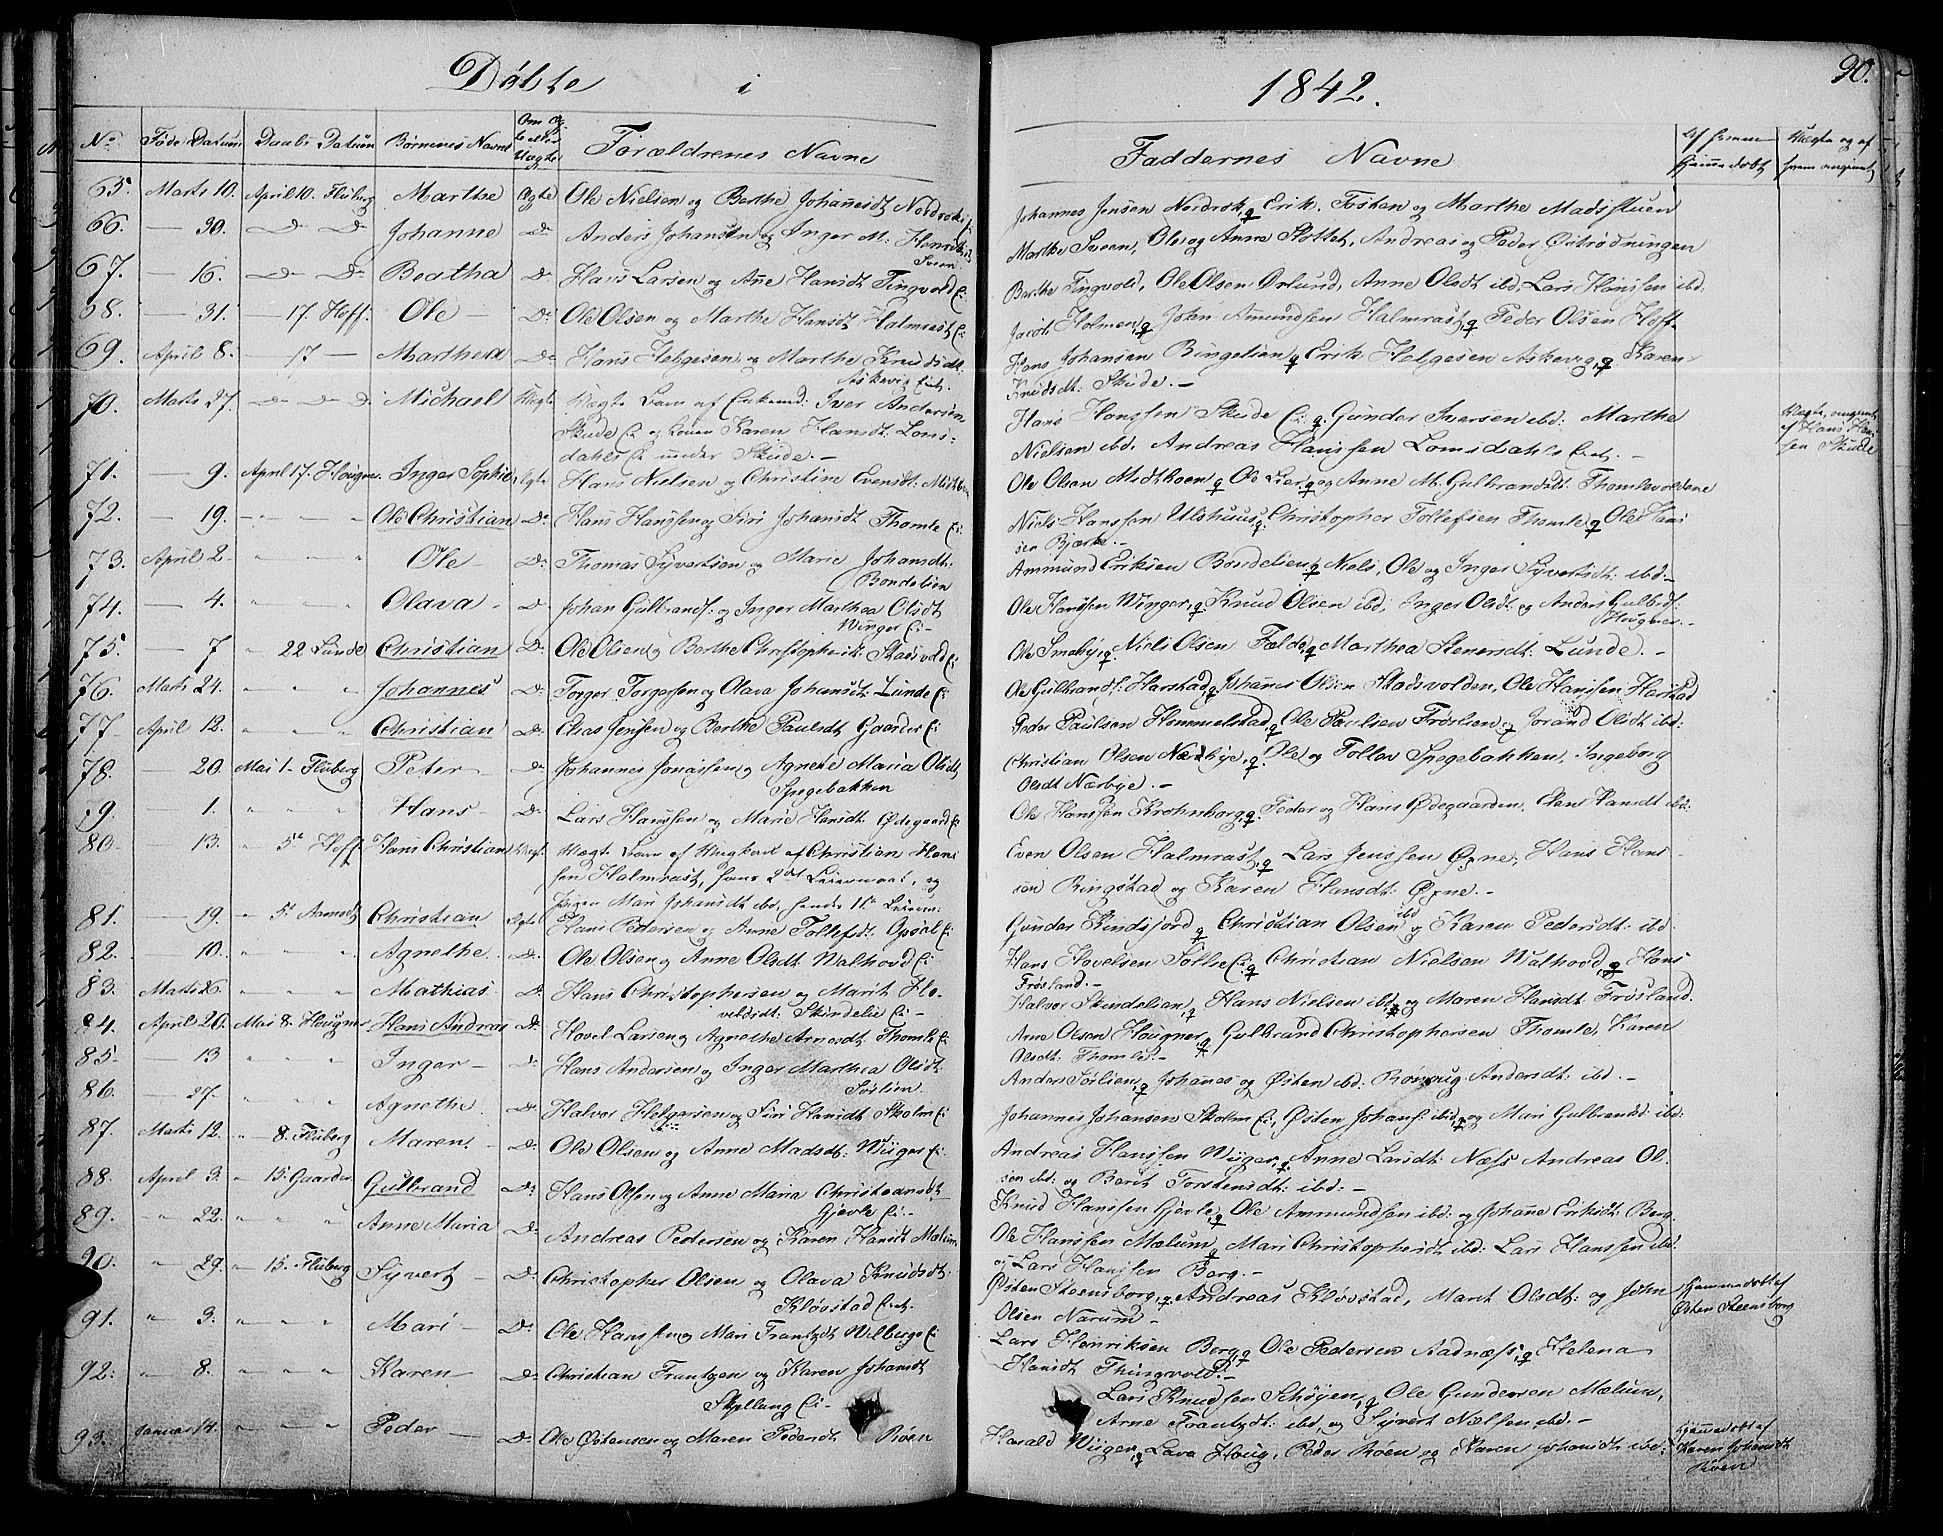 Døbte i
1842.
90.
No Føde Datum Daabs Datum Børnenes Navne Om Ægte eller Uægte Forældrenes Navne
Faddernes Navne Af hvem hjemmedøbt Uægte og af hvem angivet
65. Marts 10. April 10. Fluberg Marthe Ægte Ole Nielsen og Berthe Johannesdt
Johannes Jensen Erik og Marthe
66. — 30. — Do — Do Johanne Do Anders Johansen og Inger M: Henriksdt
Sveen
Marthe Sveen, Ole og Anne Slottet, Andreas og Peder Østrødningen
67. — 16. — Do — Do Beatha Do Hans Larsen og Anne Hansdt Tingvold Ei:
Berthe Tingvold, Ole Olsen Anne Olsdt ibd, Lars Hanssen ibd:
68. — 31. — 17. Hoff. Ole — Do Ole Olsen og Marthe Hansdt Halmrast Ei:
Jacob Holmen, Johan Amundsen Halmrast, Peder Olsen Hoff —
69. April 8. — 17 — Marthea Do Hans Helgesen og Marthe Knudsdt:
Askevig
Hans Johansen Ringelien Erik Helgesen Askevig, Karen
Knudsdt: Skude. —
70. Marts 27. — Do — Do Michael Uægte Uægte Barn af Enkemd: Iver Andersen
Skude Ei og Karen Hansdt: Loms-
dahls under Skude. —
Hans Hanssen Skude Ei: Gunder Iversen ibd: Marthe
Nielsen ibd. Andreas Hanssen Lomsdahls —
Uægte, angivet
af Hans Han-
sen Skude
71. — 9. April 17. Hougner Inger Sophie Ægte Hans Nielsen og Christine Evensdt:
Ole Olsen Ole Lier og Anne M. Gulbrandsdt: Thomlevoldene
72. — 19. Ole Christian Do Hans Hanssen og Siri Johansdt Thomle Ei:
Niels Hanssen Ulshuus Christopher Tollefsen Thomle Ole Hans
sen Bjærke. —
73. April 2. Ole — Do Thomas Syvertsen og Marie Johansdt:
Bondelien
Ammund Eriksen Bondelien Niels, Ole og Inger Syvertsdt: ibd —
74. — 4. Olava — Do Johan Gulbrands: og Inger Marthea Olsdt
Winger Ei —
Ole Hanssen Winger, Knud Olsen ibd: Inger Olsdt og Anders Gulbrds:
Hugner. —
75. — 7 22 Lunde Christian Do Ole Olsen og Berthe Christophersdt: Stadsvold Ei
Ole Smeby, Niels Olsen Marthea Stenersdt: Lunde. —
76. Marts 24. Johannes Do Torger Torgersen og Olava Johansdt: Lunde Ei
Ole Gulbrands: Harstad Johannes Olsen Stadsvolden, Ole Hanssen Harstad
77 April 12. Christian Do Elias Jensen og Berthe Paulsdt Gaarder Ei
Peder Paulsen Hommelstad, Ole Paulsen Frøslien, Jorand Olsdt ibd:
78. — 20. Mai 1 — Fluberg Peter — Do Johannes Jonassen og Agnete Maria Olsdt
Spegebakken
Christian Olsen Nærbye, Ole og Tollev Spegebakken, Ingeborg
Olsdt Nærbye. —
79. — 1. Hans — Do Lars Hanssen og Marie Hansdt: Ødegaard Ei
Ole Hanssen Krohnborg, Peder og Hans Ødegaarden, Hansdt ibd:
80 — 13. — 5te Hoff Hans Christian Uægt. Uægt. Barn af Ungkarl af Christian Hans
sen Halmrast, hans 2det Leiermaal, og
Mari Johansdt ibd, hendes 1ste Leierm:
Even Olsen Halmrast, Lars Jenssen Øxne, Hans Hans
sen Ringstad og Karen Hansdt: Øxne. —
81. — 19. 5. Christian Ægte Hans Pedersen og Anne Tollefsdt: Opsal Ei
Gunder Kindsjord Christian Olsen ibd og Karen Pedersdt: ibd.
82. — 10. Agnethe Do Ole Olsen og Anne Olsdt Walhovd Ei
Hans Hovelsen Tollse Ei: Christian Nielsen Walhovd, Hans
Frøsland. —
83. Marts 26. Mathias Do Hans Christophersen og Marit Ho-
velsdt: Skindelie Ei —
Halvor Skindelien, Hans Nielsen ibd, og Maren Hansdt Frøsland.
84. April 26. Mai 8. Hougner Hans Andreas Do Hovel Larsen og Agnethe Arnesdt: Thomle Ei
Arne Olsen Hougner Gulbrand Christophersen Thomle, Karen
Olsdt: Thomle. —
85. — 13 Inger — Do Hans Andersen og Inger Marthea Olsdt:
Sørlien.
Anders Sørlien, Johannes og Østen ibd: Rønnug Andersdt ibd. —
86. — 27. Agnethe Do Halvor Helgersen og Siri Hansdt Skolm Ei
Johannes Johansen Skolm Ei, Østen Johans: ibd, og Mari Gulbrandsd: ibd:
87. Marts 12. 8. Fluberg Maren. — Do Ole Olsen og Anne Madsdt: Wiiger Ei
Andreas Hanssen Wiiger, Anne Larsdt: Næss Andreas Ol-
sen ibd: og Berit Torstensdt: ibd: —
88. April 3. 15. Gaarder Gulbrand Do Hans Olsen og Anne Maria Christiansdt
Gjevle Ei —
Knud Hanssen Gjevle, Ole Ammundsen ibd: og Johanne Eriksdt: Berg.
89. — 22. Anne Maria Do Andreas Pedersen og Karen Hansdt Mælum
Ole Hanssen Mælum, Mari Christophersdt ibd: Lars Hanssen ibd.
og Lars Hanssen Berg. —
90. 29. 15. Fluberg Syvert — Do Christopher Olsen og Olava Knudsdt:
Kløvstad
Østen Steensborg, Andreas Kløvstad, Marit Olsdt: og John
Olsen Narum —
Hjemmedøbt af
Østen Steensborg
91. 3. Mari — Do Ole Hanssen og Mari Frantzdt: Wilberge Ei
Lars Henriksen Berg, Ole Pedersen Aadnæss, Helena
Hansdt Thingvold. —
92. 8. Karen — Do Christian Frantzen og Karen Johansdt
Skyllung Ei —
Lars Knudsen Schøyen, Ole Gundersen Mælum,
Arne Frantzdt: ibd, og Syvert Nielsen ibd. —
93. Januar 14. Peder — Do Ole Østensen og Maren Pedersdt Røen
Harald Wiiger, Lava Houg, Peder Røen og Karen Johansdt ibd:
Hjemmedøbt af
Karen Johansdt
Røen